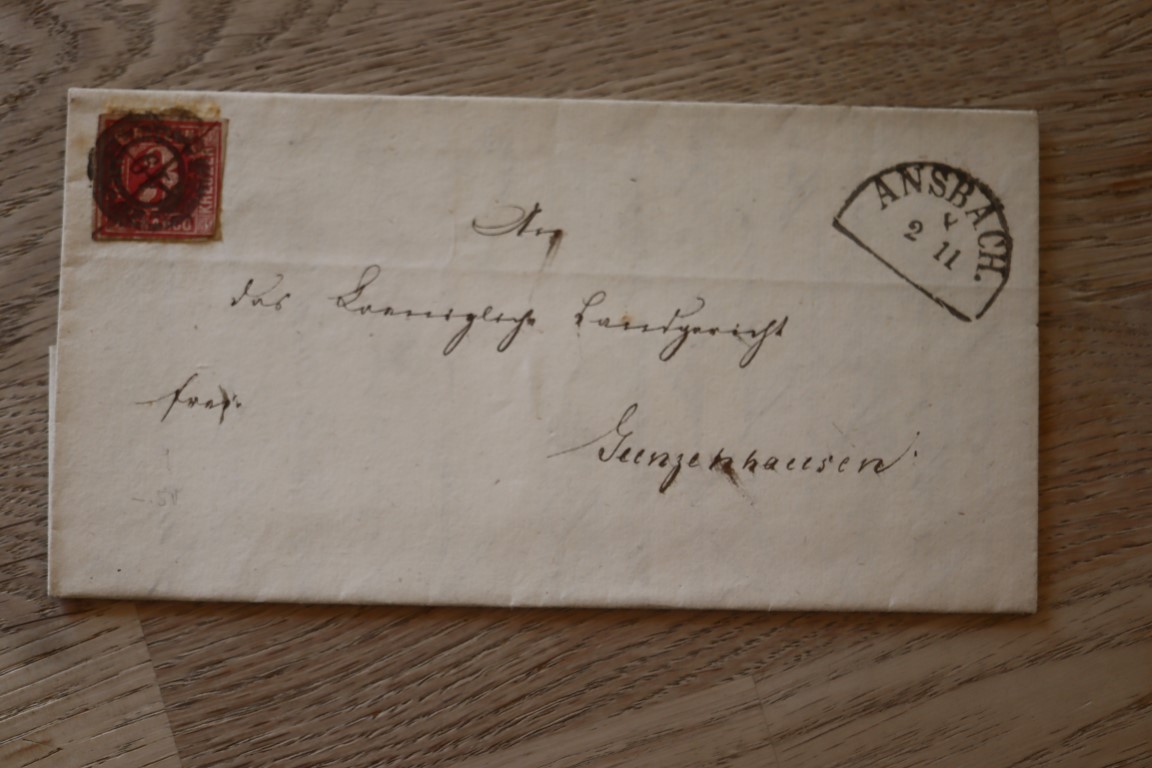 KREUZER
ANSBACH.
2 11
An
das Koenigliche Landgericht
frei.
Gunzenhausen